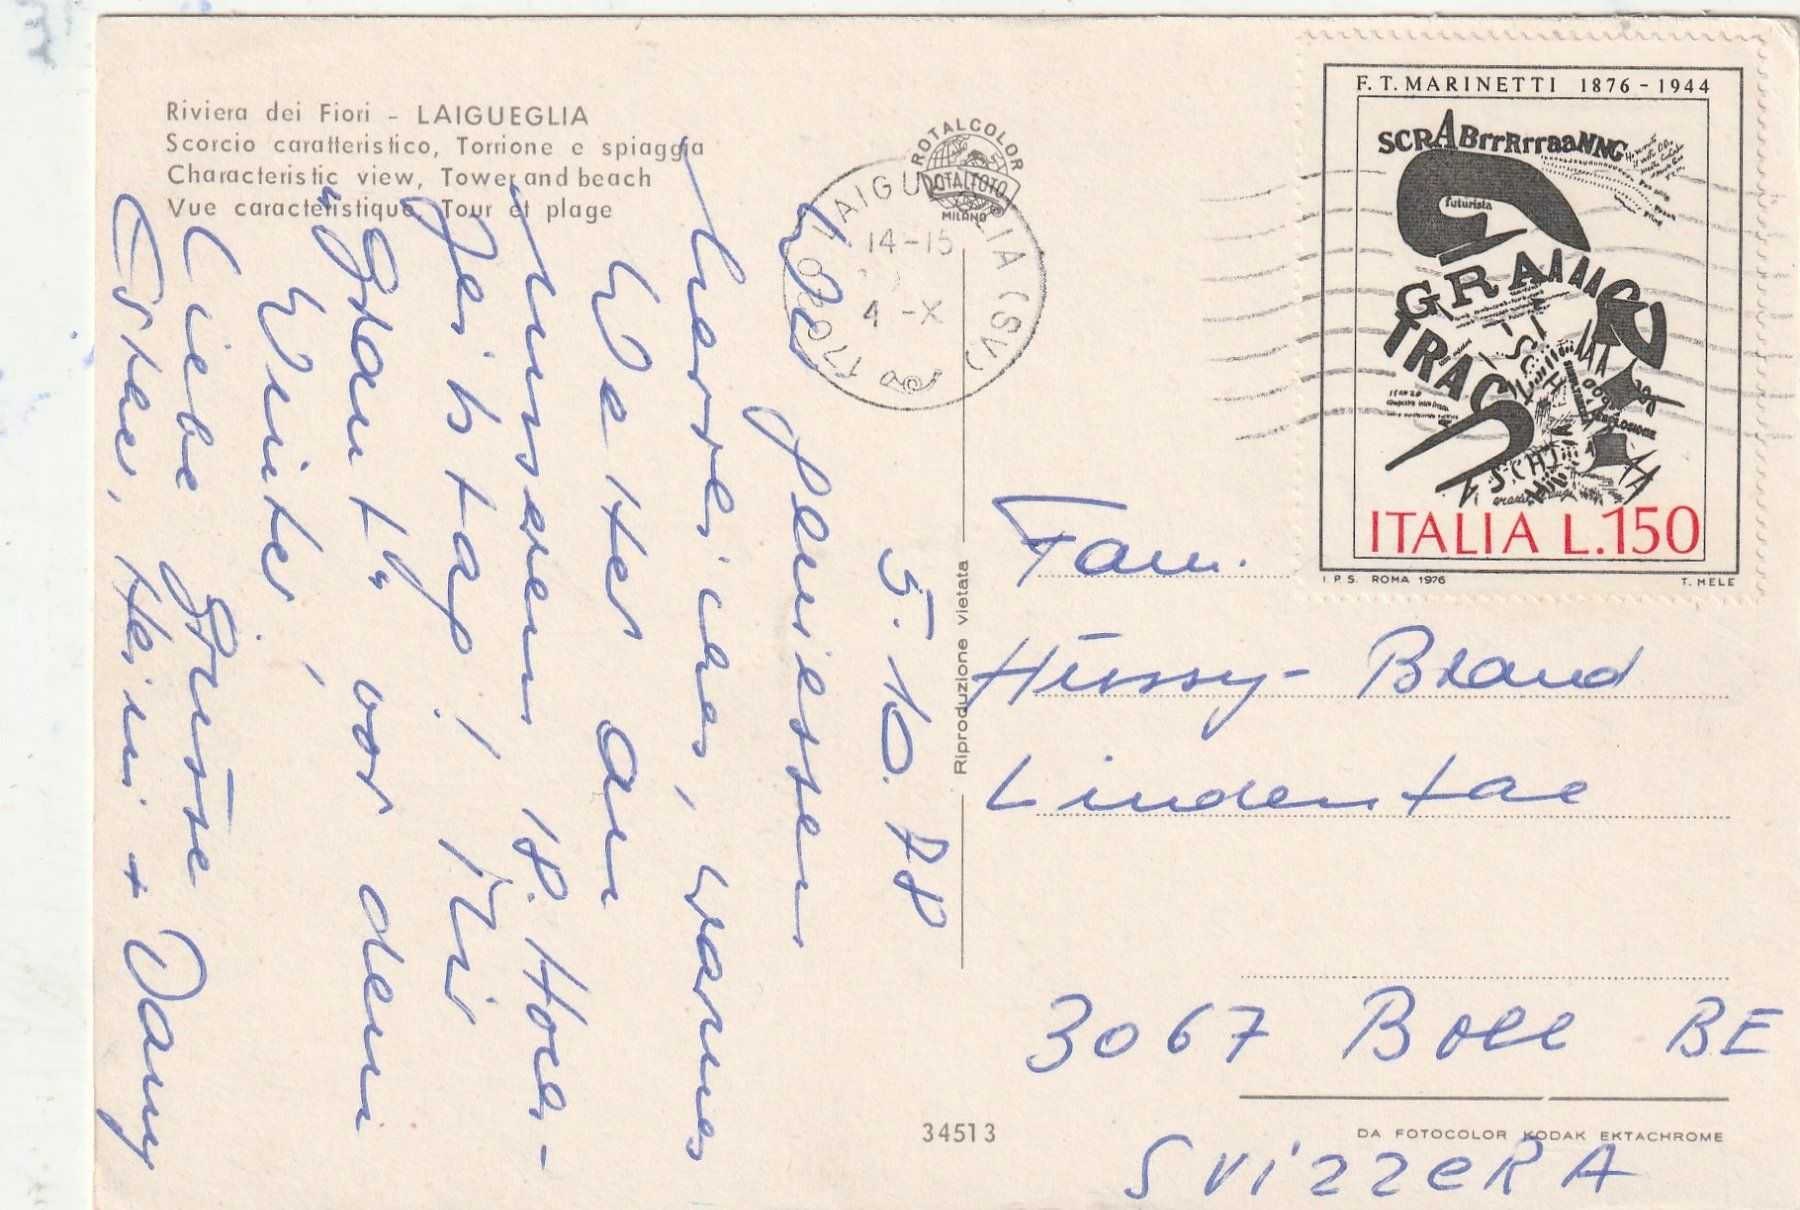 Riviera dei Fiori - LAIGUEGLIA
Scorcio caratteristico, Torrione e spiaggia
Characteristic view, Tower and beach
Vue caractéristique, Tour et plage
ROTALCOLOR
ROTALFOTO
MILANO
17020 LAIGUEGLIA (SV)
14-15
4 -X
F. T. MARINETTI 1876 - 1944
SCRABrrRrraaNNG
futurista
GRAAAACC
TRAC
ITALIA L.150
I.P.S. ROMA 1976
T. MELE
5. 10. 78
Wir geniessen
herrliches, warmes
Wetter an
unserem 18. Hoch-
zeitstag!
"Glanz" vor dem
Winter,
Liebe Grüsse
Esther, Heini + Dany
Riproduzione vietata
Fam.
Hüssy-Brand
Lindental
3067 Boll BE
SVIZZERA
34513
DA FOTOCOLOR KODAK EKTACHROME